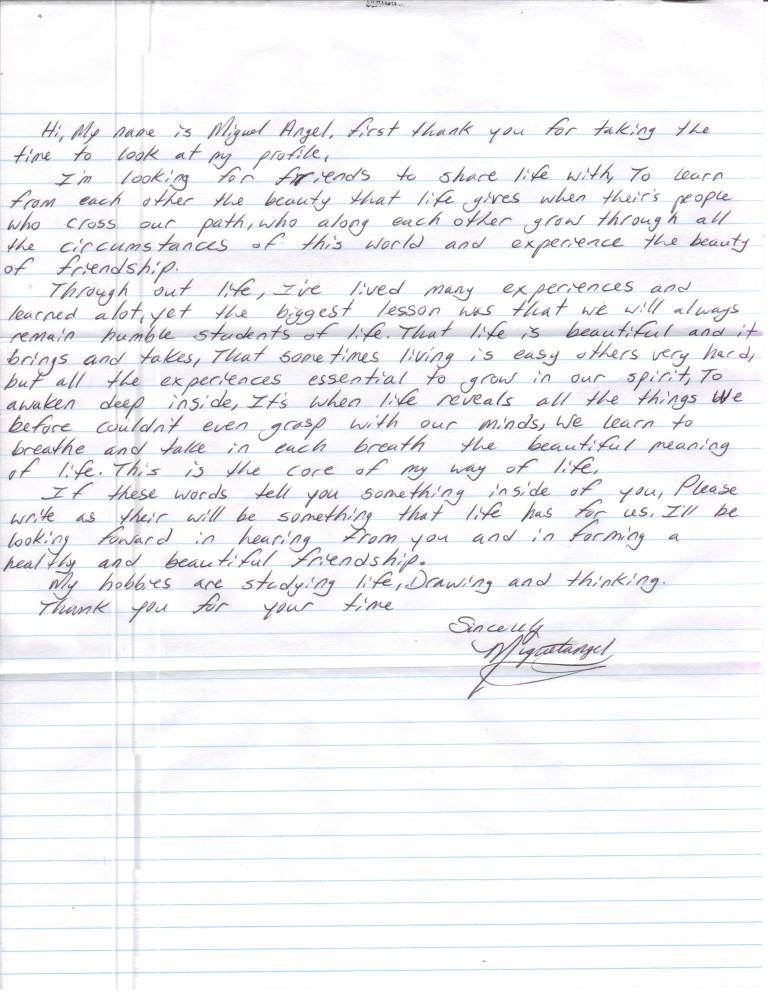 Hi, My name is Miguel Angel, first thank you for taking the
time to look at my profile,
I'm looking for friends to share life with, To learn
from each other the beauty that life gives when their's people
who cross our path, who along each other grow through all
the circumstances of this world and experience the beauty
of friendship.
Through out life, I've lived many experiences and
learned alot, yet the biggest lesson was that we will always
remain humble students of life. That life is beautiful and it
brings and takes, That sometimes living is easy others very hard,
but all the experiences essential to grow in our spirit, To
awaken deep inside, It's when life reveals all the things We
before couldn't even grasp with our minds, We learn to
breathe and take in each breath the beautiful meaning
of life. This is the core of my way of life,
If these words tell you something inside of you, Please
write as their will be something that life has for us. I'll be
looking foward in hearing from you and in forming a
healthy and beautiful friendship.
My hobbies are studying life, Drawing and thinking.
Thank you for your time
Sincerely
Miguelangel